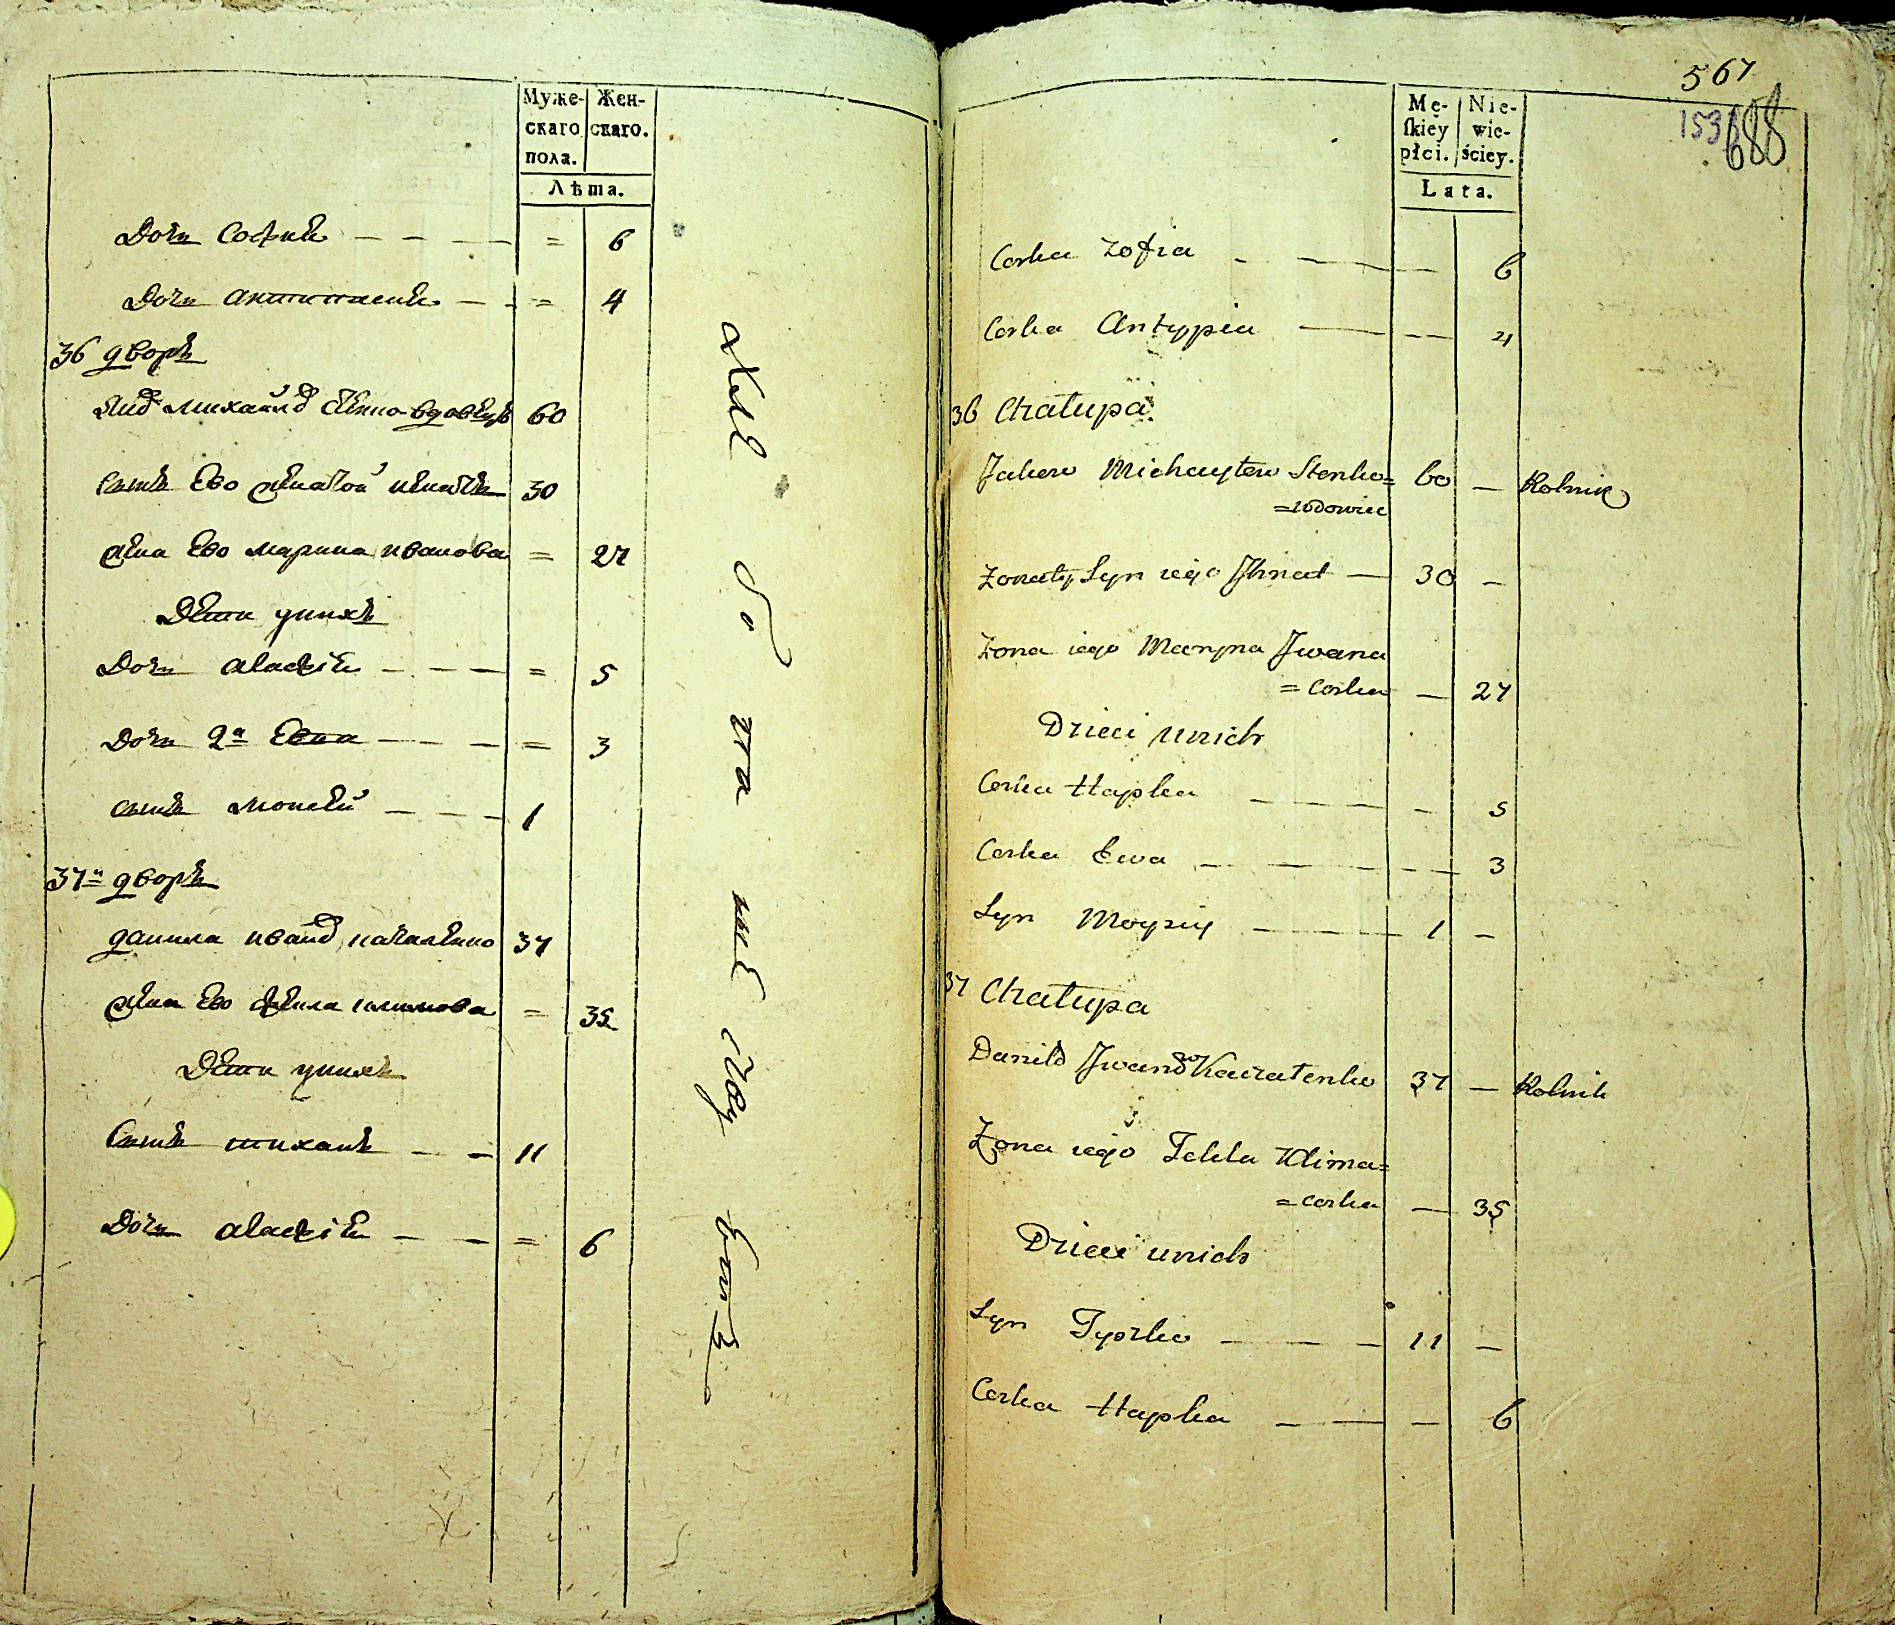 Муже-
скаго
пола.
Жен-
скаго.
Лѣта.
Дочь София — — — = 6
Дочь антипиена — - = 4
36 дворъ
Яко михайло Стенко вдовецъ 60
Сынъ Ево женатой игнатъ 30
жена Ево марина иванова = 27
Дети унихъ
Дочь агафия — — — = 5
Дочь 2я Евва — — — = 3
сынъ моисей — — — 1
37й дворъ
данила иванов качаленко 37
жена Ево фекла климова = 35
Дети унихъ
Сынъ тихонъ — — 11
Дочь агафия — — = 6
хле бо па ше ству етъ
567
153
688
Mę-
skiey
płci.
Nie-
wie-
ściey.
Lata.
Corka Zofia - — — 6
Corka Antypia — -- 4
36 Chałupa
Jakow Michayłow Stenko= 60 — Rolnik
=wdowiec
Zonaty Syn iego Jhnat — 30 —
Zona iego Maryna Jwana
=corka — 27
Dzieci unich
Corka Hapka — — — - 5
Corka Ewa — — — - - 3
Syn Moyziy — — — 1 —
37 Chałupa
Daniło Jwanow Kaczałenko 37 — Rolnik
Zona iego Tekla Klima=
=corka — 35
Dzieci unich
Syn Tyszko — — — 11 —
Corka Hapka — — — 6